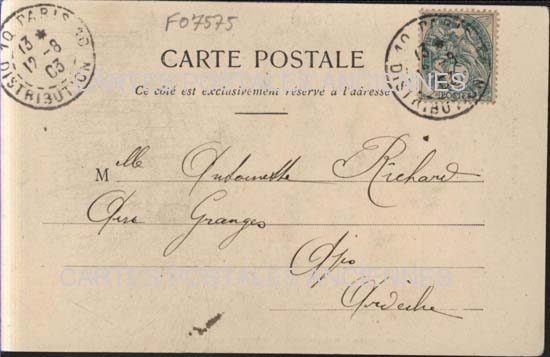 F07575
10 PARIS 10
13 *
12 - 8
03
DISTRIBUTION
CARTE POSTALE
Ce côté est exclusivement réservé à l'adresse
CARTES POSTALES ANCIENNES
Mlle Antoinette Richard
Granges
Ardèche
CARTES POSTALES ANCIENNES
10 PARIS
13
DISTRIBUTION
POSTES